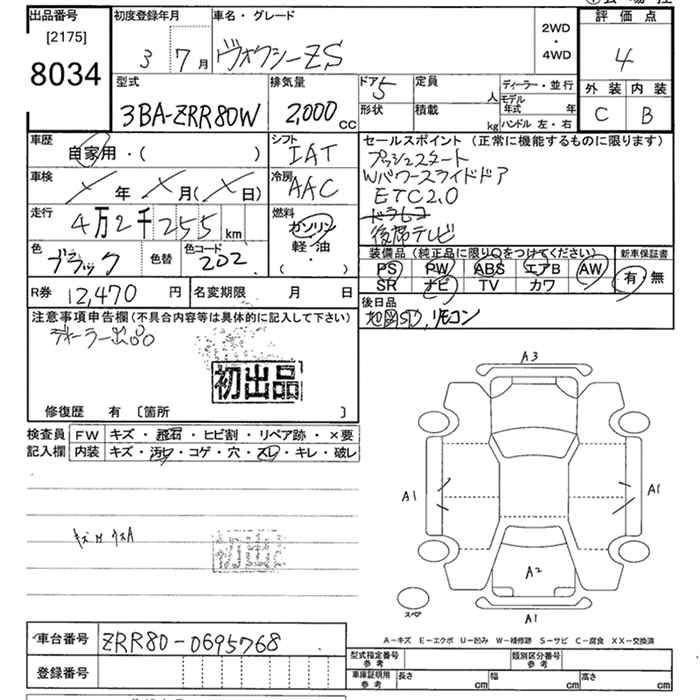 出品番号
[2175]
8034
初度登録年月
3 7月
車名・グレード
ヴォクシーZS
2WD
・
4WD
評価点
4
外装 内装
C B
型式
3BA-ZRR80W
排気量
2,000cc
ドア 5
形状
定員 人
積載 kg
ディーラー・並行
モデル年式 年
ハンドル 左・右
車歴
自家用・( )
シフト
IAT
車検
年 月( 日)
冷房
AAC
走行
4万2千255km
燃料
ガソリン
軽・油
・( )
色
ブラック
色替
色コード
202
R券 12,470 円
名変期限 月 日
セールスポイント(正常に機能するものに限ります)
プッシュスタート
Wパワースライドドア
ETC2.0
ドラレコ
後席テレビ
装備品(純正品に限り○をつけてください)
PS PW ABS エアB AW
SR ナビ TV カワ
新車保証書
有・無
後日品
地図SD, リモコン
注意事項申告欄(不具合内容等は具体的に記入して下さい)
ディーラー出品
初出品
修復歴 有 [箇所 ]
検査員記入欄
FW キズ・飛石・ヒビ割・リペア跡・×要
内装 キズ・汚レ・コゲ・穴・スレ・キレ・破レ
初出品
A3
A1 A1
A2
スペア
A1
A-キズ E-エクボ U-凹み W-補修跡 S-サビ C-腐食 XX-交換済
車台番号 ZRR80-0695768
登録番号
型式指定番号参考
類別区分番号参考
車庫証明用参考
長さ cm 幅 cm 高さ cm